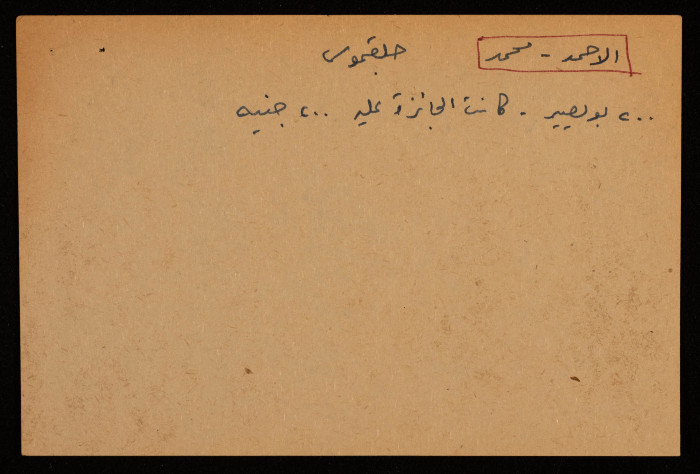 الاحمد - محمد جلقموس
٢٠٠ بولصيير - كانت الجائزة عليه ٢٠٠ جنيه